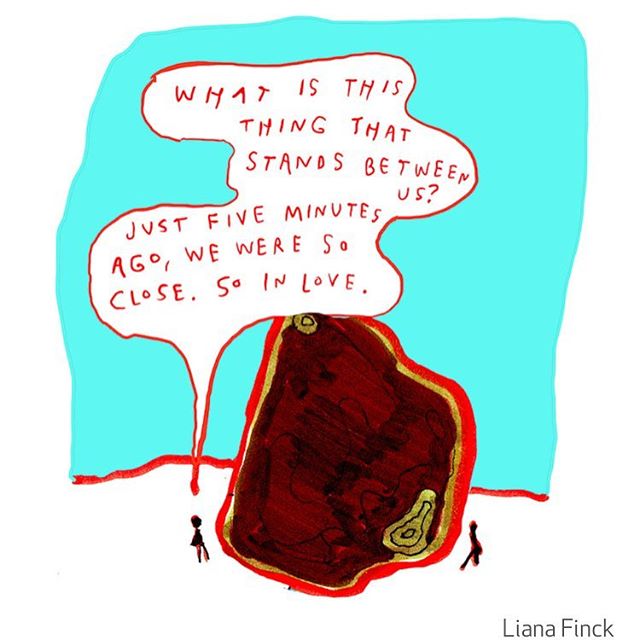 WHAT IS THIS
THING THAT
STANDS BETWEEN
US?
JUST FIVE MINUTES
AGO, WE WERE SO
CLOSE. SO IN LOVE.
Liana Finck